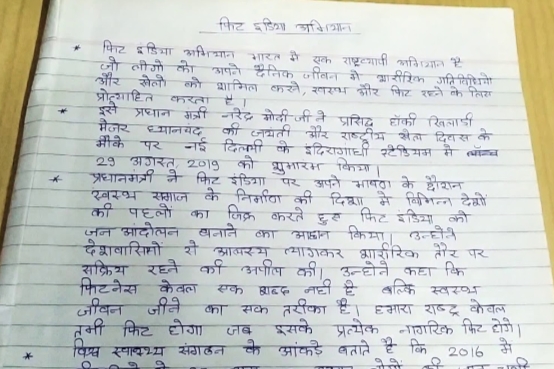 फिट इंडिया अभियान
* फिट इंडिया अभियान भारत मे एक राष्ट्रव्यापी अभियान है
जो लोगो को अपने दैनिक जीवन मे शारीरिक गतिविधियो
और खेलो को शामिल करके, स्वस्थ और फिट रहने के लिए
प्रोत्साहित करता है।
* इसे प्रधान मंत्री नरेंद्र मोदी जी ने प्रसिद्ध हॉकी खिलाड़ी
मेजर ध्यानचंद की जयंती और राष्ट्रीय खेल दिवस के
मौके पर नई दिल्ली के इंदिरागांधी स्टेडियम मे
29 अगस्त, 2019 को शुभारंभ किया।
* प्रधानमंत्री ने फिट इंडिया पर अपने भाषण के दौरान
स्वस्थ समाज के निर्माण की दिशा मे विभिन्न देशो
की पहलों का जिक्र करते हुए फिट इंडिया को
जन आंदोलन बनाने का आह्वान किया। उन्होंने
देशवासियों से आलस्य त्यागकर शारीरिक तौर पर
सक्रिय रहने की अपील की। उन्होने कहा कि
फिटनेस केवल एक शब्द नही है बल्कि स्वस्थ
जीवन जीने का एक तरीका है। हमारा राष्ट्र केवल
तभी फिट होगा जब इसके प्रत्येक नागरिक फिट होंगे।
* विश्व स्वास्थ्य संगठन के आंकड़े बताते है कि 2016 मे